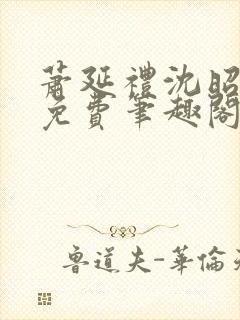 蕭延禮沈昭
免費筆趣閣
魯道夫-華倫